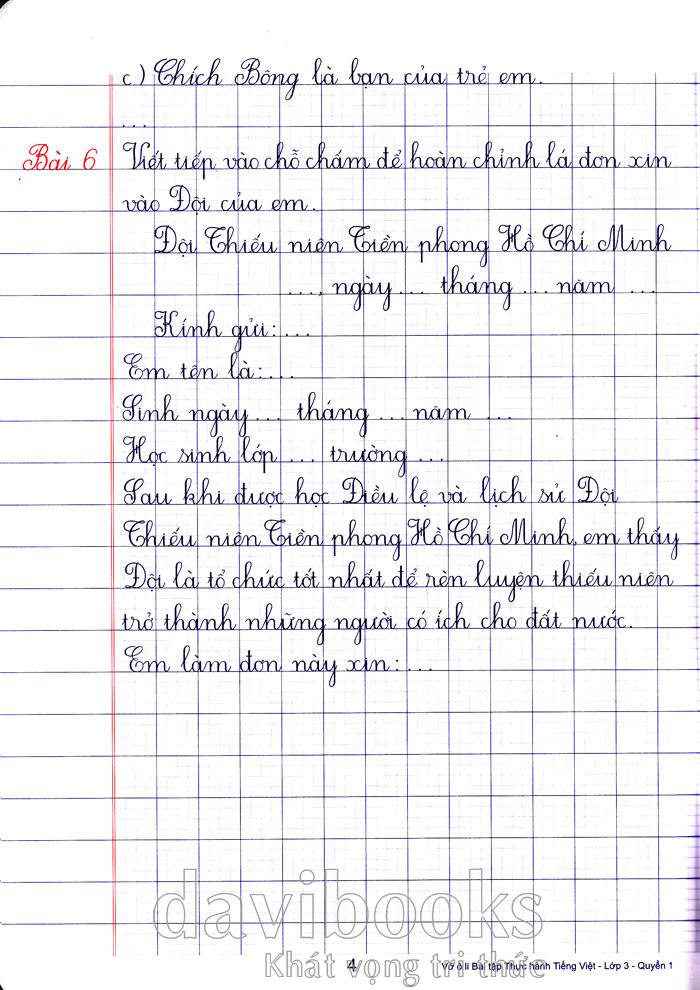 c) Chích Bông là bạn của trẻ em.
...
Bài 6 Viết tiếp vào chỗ chấm để hoàn chỉnh lá đơn xin
vào Đội của em.
Đội Thiếu niên Tiền phong Hồ Chí Minh
..., ngày ... tháng ... năm ...
Kính gửi: ...
Em tên là: ...
Sinh ngày ... tháng ... năm ...
Học sinh lớp ... trường ...
Sau khi được học Điều lệ và lịch sử Đội
Thiếu niên Tiền phong Hồ Chí Minh, em thấy
Đội là tổ chức tốt nhất để rèn luyện thiếu niên
trở thành những người có ích cho đất nước.
Em làm đơn này xin: ...
davibooks
Khát vọng tri thức
4 Vở ô li Bài tập Thực hành Tiếng Việt - Lớp 3 - Quyển 1